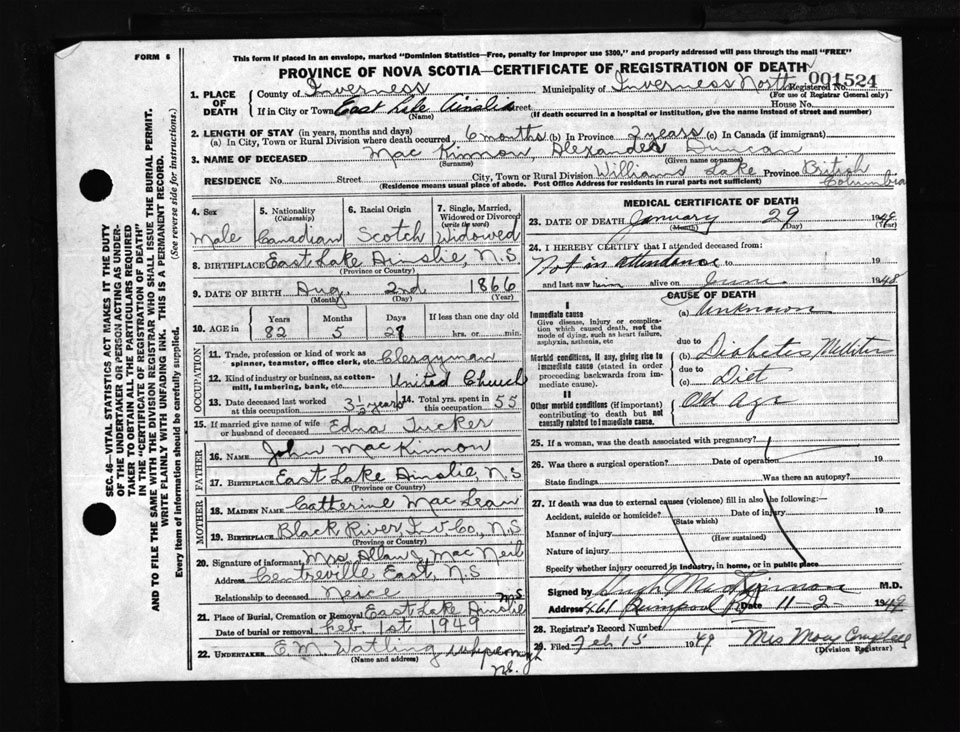 FORM 6
This form if placed in an envelope, marked "Dominion Statistics—Free, penalty for improper use $300," and properly addressed will pass through the mail "FREE"
PROVINCE OF NOVA SCOTIA—CERTIFICATE OF REGISTRATION OF DEATH
001524
SEC. 46—VITAL STATISTICS ACT MAKES IT THE DUTY
OF THE UNDERTAKER OR PERSON ACTING AS UNDER-
TAKER TO OBTAIN ALL THE PARTICULARS REQUIRED
IN THE "CERTIFICATE OF REGISTRATION OF DEATH"
AND TO FILE THE SAME WITH THE DIVISION REGISTRAR WHO SHALL ISSUE THE BURIAL PERMIT.
WRITE PLAINLY WITH UNFADING INK. THIS IS A PERMANENT RECORD.
(See reverse side for instructions.)
Every item of information should be carefully supplied.
1. PLACE OF DEATH
County of Inverness Municipality of Inverness North Registered No.
(For use of Registrar General only)
If in City or Town East Lake Ainslie Street House No.
(Name) (If death occurred in a hospital or institution, give its name instead of street and number)
2. LENGTH OF STAY (in years, months and days)
(a) In City, Town or Rural Division where death occurred 6 months (b) In Province 2 years (c) In Canada (if immigrant)
3. NAME OF DECEASED Mac Kinnon, Alexander Duncan
(Surname) (Given name or names)
RESIDENCE No. Street City, Town or Rural Division Williams Lake Province British Columbia
(Residence means usual place of abode. Post Office Address for residents in rural parts not sufficient)
4. Sex Male
5. Nationality (Citizenship) Canadian
6. Racial Origin Scotch
7. Single, Married, Widowed or Divorced (write the word) Widowed
8. BIRTHPLACE East Lake Ainslie, N.S
(Province or Country)
9. DATE OF BIRTH Aug. 2nd 1866
(Month) (Day) (Year)
10. AGE in Years Months Days If less than one day old
82 5 27 hrs. or min.
OCCUPATION
11. Trade, profession or kind of work as spinner, teamster, office clerk, etc. Clergyman
12. Kind of industry or business, as cotton-mill, lumbering, bank, etc. United Church
13. Date deceased last worked at this occupation 3½ years
14. Total yrs. spent in this occupation 55
15. If married give name of wife or husband of deceased Edna Tucker
FATHER
16. Name John MacKinnon
17. Birthplace East Lake Ainslie, N.S
(Province or Country)
MOTHER
18. Maiden Name Catherine Mac Lean
19. Birthplace Black River, Inv Co, N.S
(Province or Country)
20. Signature of informant Mrs Allan J. Mac Neil
Address Centreville East, N.S
Relationship to deceased Neice
21. Place of Burial, Cremation or Removal East Lake Ainslie NS
Date of burial or removal Feb 1st 1949
22. UNDERTAKER E.M. Watling
(Name and address)
MEDICAL CERTIFICATE OF DEATH
23. DATE OF DEATH January 29 1949
(Month) (Day) (Year)
24. I HEREBY CERTIFY that I attended deceased from:
Not in attendance to 19
and last saw him alive on June 1948
CAUSE OF DEATH
I
Immediate cause
Give disease, injury or complication which caused death, not the mode of dying, such as heart failure, asphyxia, asthenia, etc
(a) Unknown
due to
Morbid conditions, if any, giving rise to immediate cause (stated in order proceeding backwards from immediate cause).
(b) Diabetes Mellitus
due to
(c) Diet
II
Other morbid conditions (if important) contributing to death but not causally related to immediate cause.
Old Age
25. If a woman, was the death associated with pregnancy?
26. Was there a surgical operation? Date of operation 19
State findings Was there an autopsy?
27. If death was due to external causes (violence) fill in also the following:—
Accident, suicide or homicide? Date of injury 19
(State which)
Manner of injury
(How sustained)
Nature of injury
Specify whether injury occurred in industry, in home, or in public place
Signed by Hugh MacKinnon M.D.
Address 461 Date 11-2 1949
28. Registrar's Record Number
29. Filed Feb 15 1949 Mrs Campbell
(Division Registrar)